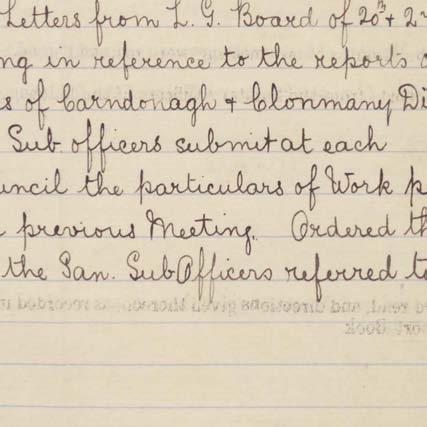 Letters from L. G. Board of 20th + 2
ng in reference to the reports
s of Carndonagh + Clonmany Di
Sub officers submit at each
uncil the particulars of Work p
previous Meeting. Ordered th
the San. SubOfficers referred to
re read, and directions given thereon as recorded in
ort Book